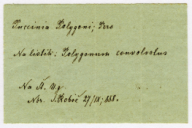 Puccinia Polygoni; Pers
Na listech: Polygonum convolvulus
Na
27/IX, 888.